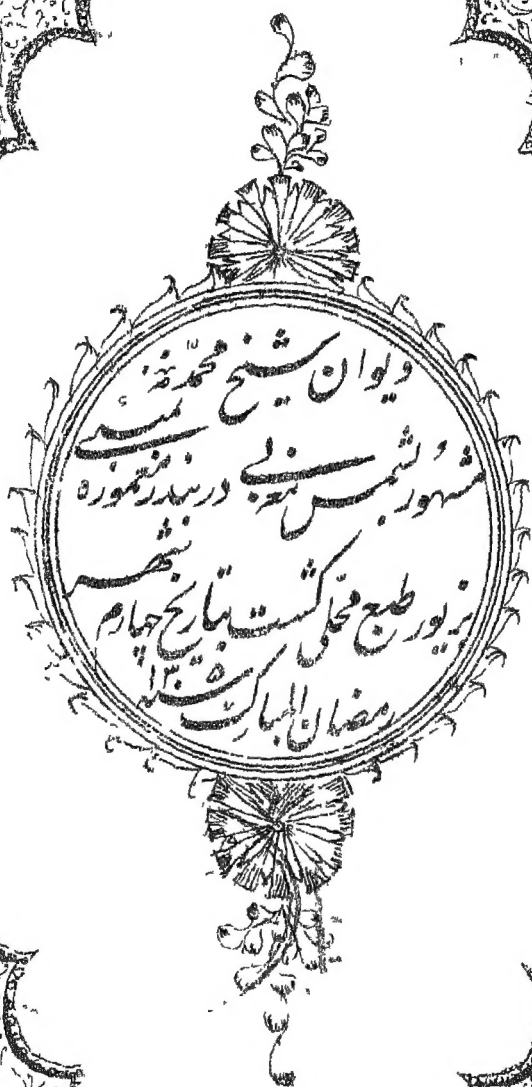 دیوان شیخ محمّد
مشهور بشمس مغربی در بندر معموره بمبئی
بزیور طبع محلّی گشت بتاریخ چهارم شهر
رمضان المبارک سنه ۱۳۰۵